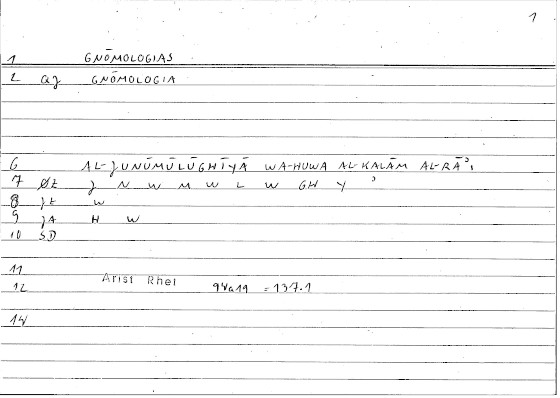 1
1 GNŌMOLOGIAS
2 aj GNŌMOLOGIA
6 AL-JUNŪMŪLŪGHĪYĀ WA-HUWA AL-KALĀM AL-RĀʾĪ
7 ØŁ J N W M W L W GH Y ʾ
8 JŁ W
9 JA H W
10 SD
11
12 Arist Rhet 94a19 = 137.1
14